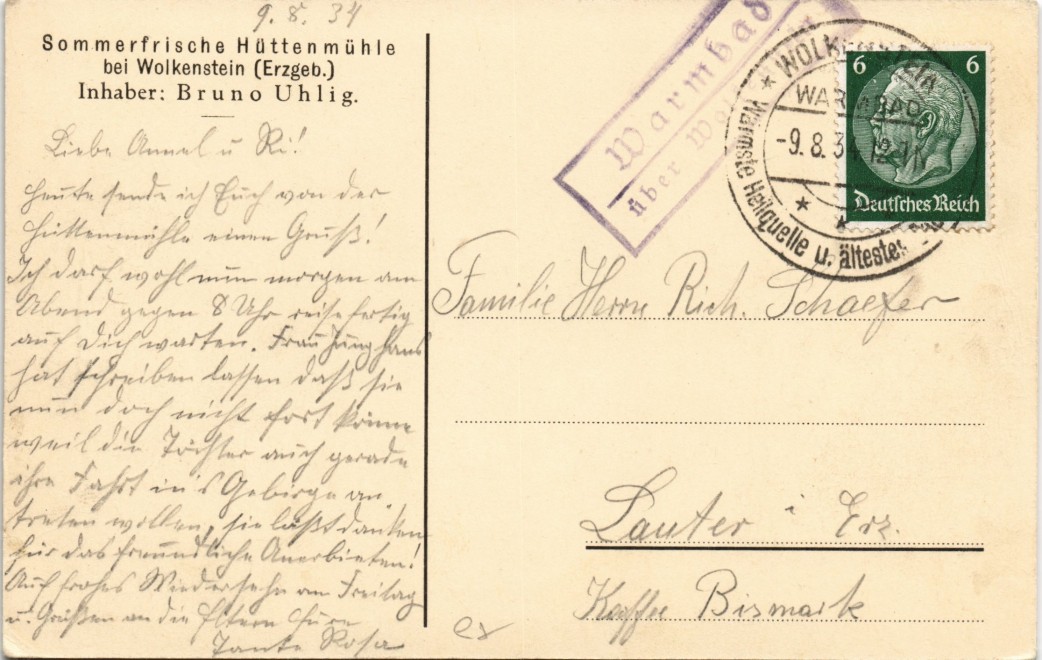 9. 8. 34
Sommerfrische Hüttenmühle
bei Wolkenstein (Erzgeb.)
Inhaber: Bruno Uhlig.
Liebe Annel u Ri!
heute sende ich Euch von der
Hüttenmühle einen Gruß!
Ich darf wohl nun morgen am
Abend gegen 8 Uhr reisefertig
auf Dich warten. Frau Junghans
hat schreiben lassen daß sie
nun doch nicht fort könne
weil die Töchter auch gerade
ihre Fahrt in's Gebirge an
treten wollen, sie läßt danken
für das freundliche Anerbieten!
Auf frohes Wiedersehn am Freitag
u. Grüßen an die Eltern Eure
Tante Rosa
Warmbad
über Wol
WOLKENSTEIN
WARMBAD
-9.8.34
Wärmste Heilquelle u. ältestes
6 6
Deutsches Reich
Familie Herrn Rich. Schaefer
Lauter i Erz.
Kaffee Bismark